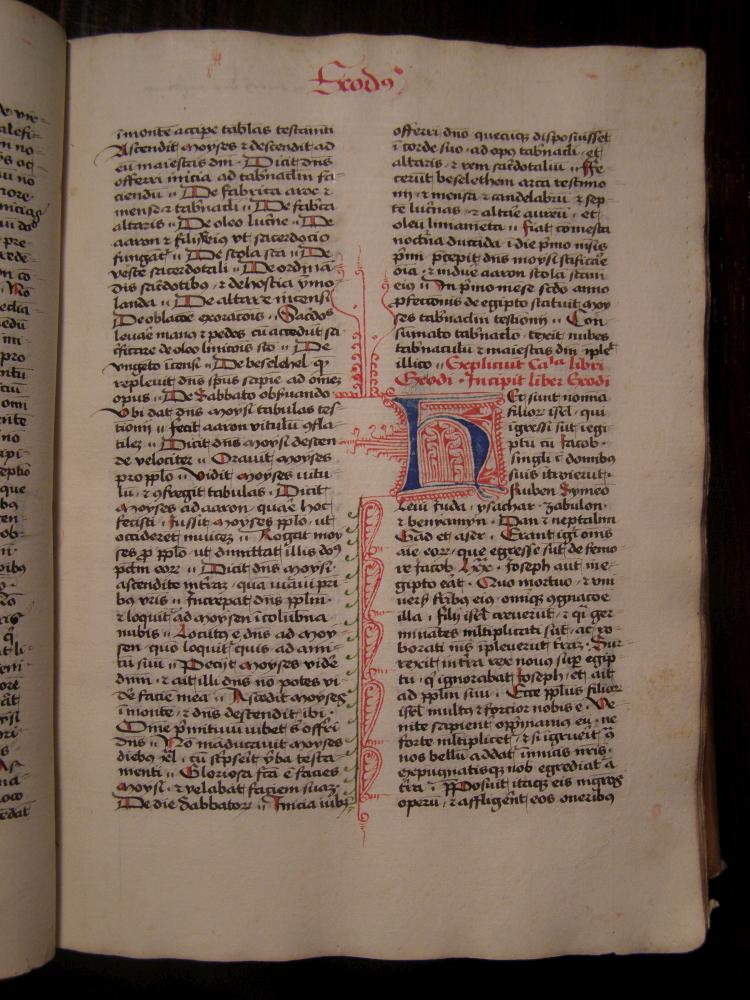 Exodus
i monte accipe tablas testimti
Ascendit moyses ⁊ descendit ad
eū maiestas dni · Dicit dns
offerri inicia ad tabnaclm fa
ciendū · De fabrica arce ⁊
mense ⁊ tabnacli · De fabrica
altaris · De oleo lucne · De
aaron ⁊ filiis eius vt sacerdocio
fungāt · De stola sca · De
veste sacerdotali · De ordina
dis sacdotibꝯ ⁊ de hostia ymo
landa · De altare incensi
De oblacōe exoracōis · Sacdos
lavāe manꝯ ⁊ pedes cū accedūt sa
cficare de oleo linicōis sco · De
vngeto icensi · De beselehel qꝫ
replevit dns spūs sapīe ad omē
opus · De sabbato obsuando
Vbi dat dns moysi tabulas tes
timonij · fecit aaron vitulū ꝯfla
tilē · Dicit dns moysi descen
de velociter · Oravit moyses
pro pplo · Vidit moyses vitu
lū · ⁊ ꝯfregit tabulas · Dicit
moyses ad aaron · quare hoc
fecisti · Jussit moyses pplo · ut
occideret invicez · Rogat moy
ses ꝓ pplo · ut dimittat illis dns
pctm eoꝝ · Dicit dns moysi ·
ascendite in trāz · qua iuravi pri
bꝯ vris · Increpat dns pplm ·
⁊ loquit ad moysen i colūbna
nubis · Locutꝯ e dns ad moy
sen · quō loquit quis ad ami
cū suū · Peciit moyses vidē
dnm · ⁊ ait illi dns no potes vi
de facie mea · Ascēdit moyses
i monte · ⁊ dns descendit ibi ·
Omē pmitiuū iubet s offrri
dns · No māducauit moyses
diebꝯ xl · cū scpseit vba testa
menti · Gloriosa fca e facies
moysi · ⁊ velabat faciem suaz ·
De die sabbatoꝝ · Inicia iub
offerri dno quecūqꝫ disposuisset
i corde suo · ad opꝯ tabnacli · et
altaris · ⁊ rem sacdotaliū · Fe
cerūt beselehem arca testimo
nij · ⁊ mensa ⁊ candelabrū ⁊ sep
te lucnas · ⁊ altare aureū · et
oleū linimenta · fiat comesta
nocturna ducāda i die pmo msis
pmi · pcepit dns moysi scificare
oīa · ⁊ induē aaron stola scam
eiꝯ · In pmo mese scdo anno
pfeccionis de egipto statuit moy
ses tabnaclm testionij · Con
sumato tabnaclo · texit nubes
tabnaculū ⁊ maiestas dni iplet
illico · Explicuit Capla libri
Exodi · Incipit liber Exodi
Hec sunt nomina
filioꝝ isrl · qui
igressi sūt egi
ptū cū Jacob ·
singli i domibꝯ
suis itroierūt ·
Ruben Symeo
Levi iuda · ysachar · zabulon ·
⁊ beniamyn · Dan ⁊ neptalim
Gad et aser · Erant igit omīs
aīe eoꝝ · que egresse sūt de femo
re Jacob lxx · Joseph aūt in e
gipto erāt · Quo mortuo ⁊ vni
uersꝭ fribꝯ eiꝯ · omiqꝫ ꝯgnacoe
illa · filij isrl creverūt · ⁊ qi ger
minātes mltiplicati sūt · ac ro
borati nīs ipleverūt trāz · Sur
rexit intra rex novꝯ sup egip
tū · q ignorabat Joseph · et ait
ad pplm suū · Ecce pplus filioꝝ
isrl multꝯ ⁊ forcior nobis e · Ve
nite sapient oppmamꝯ eū · ne
forte mltiplicet · ⁊ si igruerit ꝯ
nos bellū addat inimicis nris ·
expugnatisqꝫ nob egrediat a
trā · Pposuit itaqꝫ eis mgros
operū · ⁊ affligent eos oneribꝯ